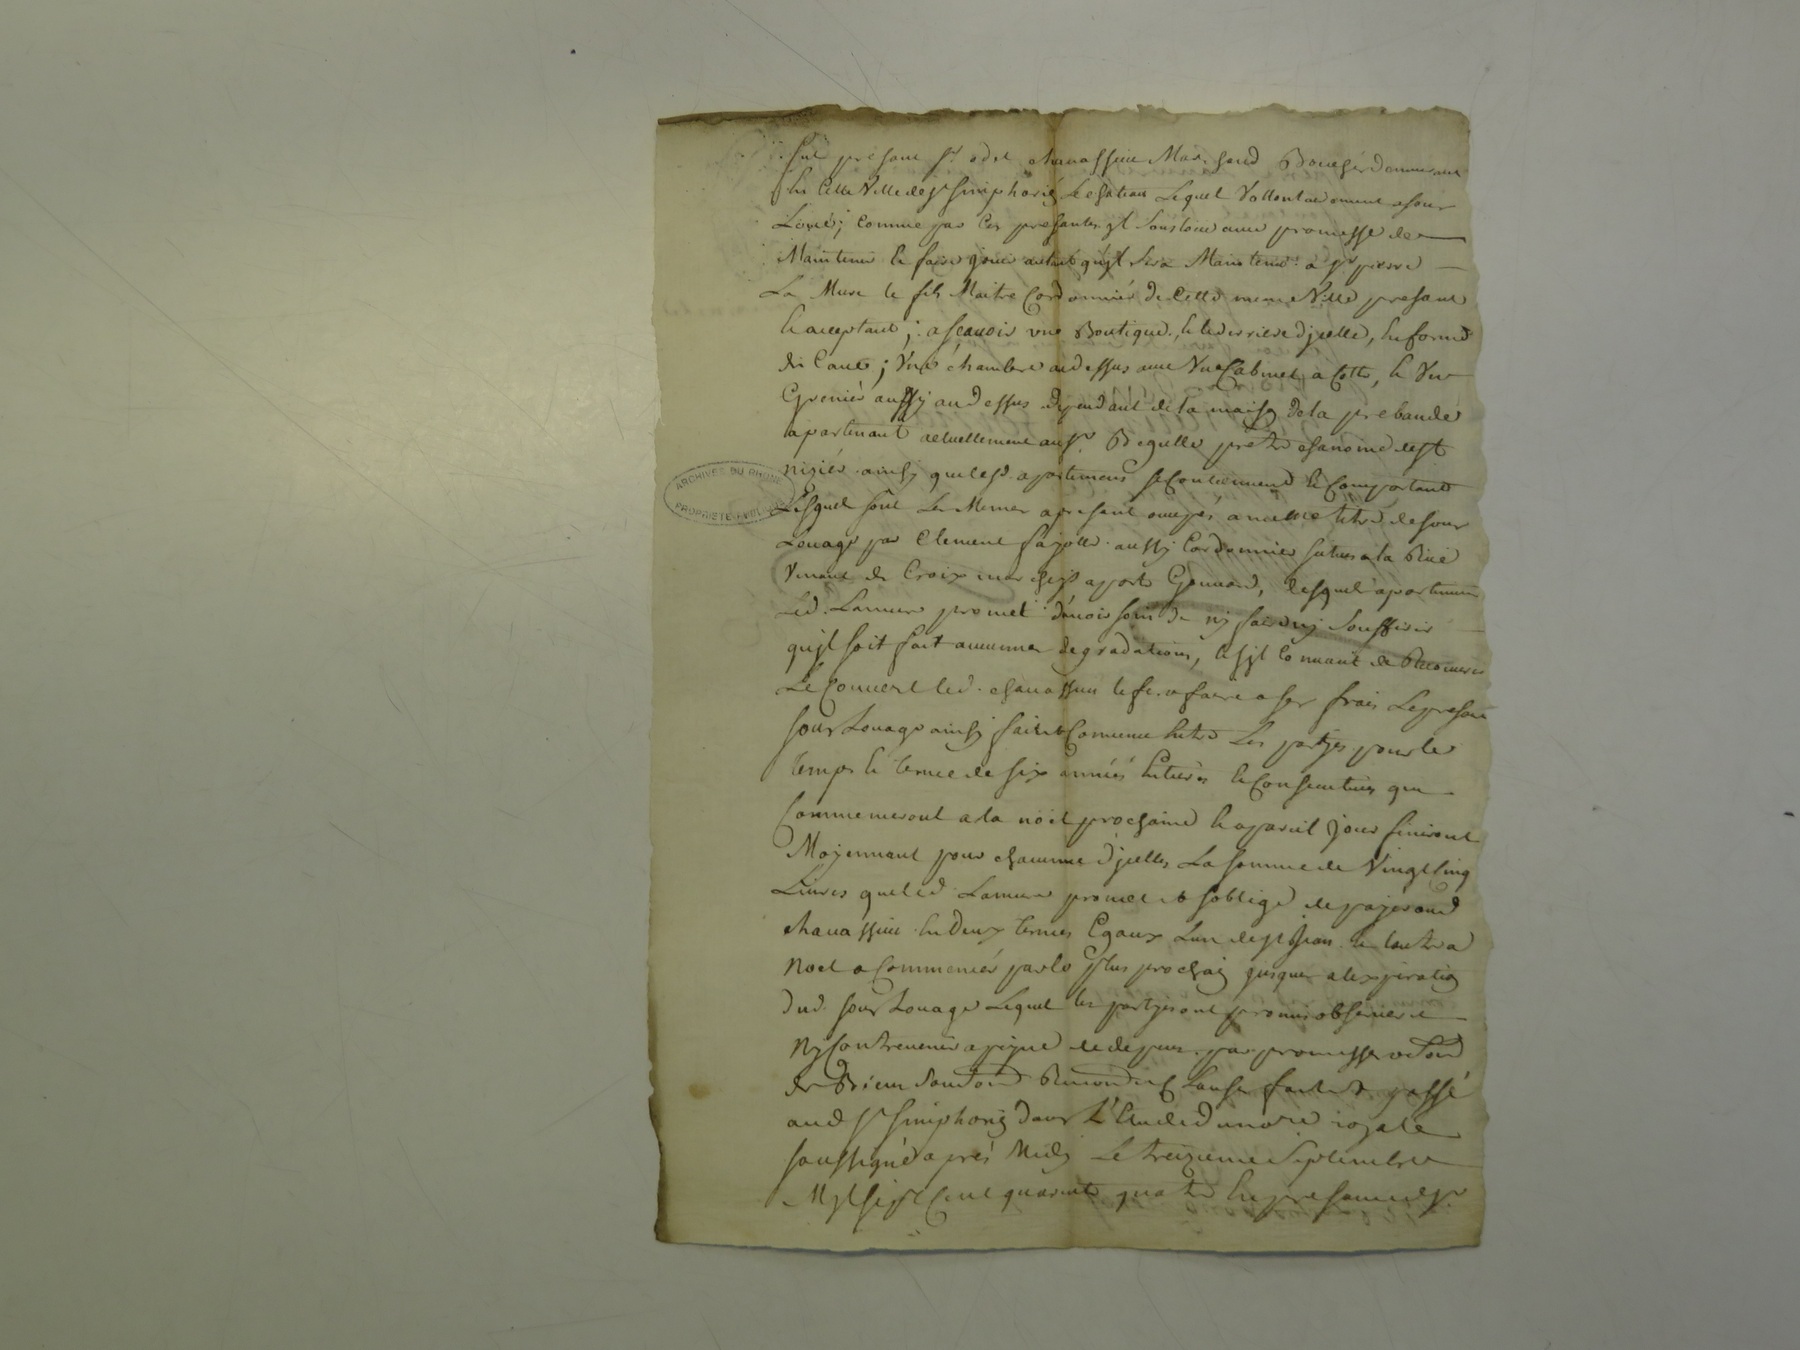 fut présent Sr odet chavassieu Marchand Boucher demeurant
en cette Ville de St Simphorien le chateau Lequel Vollontairement a sour
Loué; comme par Ces présantes jl sousloue avec promesse de
Maintenir et faire jouir autant qujl sera Maintenu a Sr pierre
La Mure le fils Maitre Cordonnier de Cette meme Ville présant
et acceptant; ascavoir une Boutique, et le derriere djcelle, en forme
de Cave; Une chambre au dessus avec Un Cabinet a Cotté, et Un
Grenier aussy au dessus dépendant de la maison de la prebande
apartenant actuellement au Sr. Begulle pretre chanoine de St
nizier ainsy que lesd. apartemens se Contiennent et Comportent
Lesquel sont Les Memes apresant occupés a meme titre de sour
Louage par Clement fayolle aussy Cordonnier situes a la Rue
Venant de Croix a porte Gonnard, desquels apartemens
Led. Lamure promet d'avoir soin de ny faire ny Souffrir
qujl soit fait aucunnes degradations, et sjl Convient de Recouvrir
Le Couvert led. chavassieu le fera faire a ses frais Le present
sour Louage ainsy fait et Convenu Entre Les partjes pour le
temps et terme de six années Entieres et Consecutives qui
Commenceront a la noel prochaine et a pareil jour finiront
Moyennant pour chacunne djcelles La somme de Vingt Cinq
Livres que led. Lamure promet et soblige de payer aud
chavassieu En Deux termes Egaux Lun de St Jean et lautre a
Noel a Commencer par le plus prochain jusques a lexpiration
Dud. sour Louage Lequel les partjes ont promis observer et
Ny Contrevenir a pejne de depens par promesse
de Biens Renon et Clauses fait et passé
aud St Simphorien dans L'Etude du nore royale
soussigné après Midy Le treizieme Septembre
Mjl Sept Cent quarante quatre En presance de Sr
ARCHIVES DU RHONE
PROPRIÉTÉ PUBLIQUE